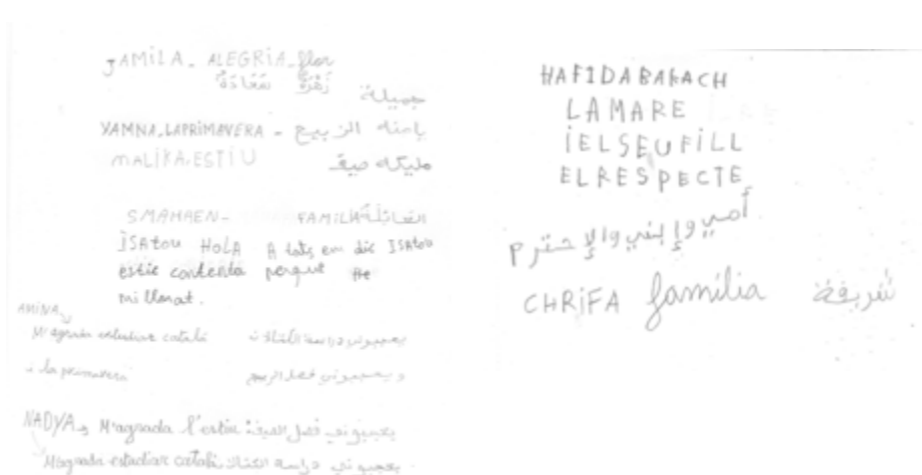 JAMILA - ALEGRIA - flor
زهرة سعادة جميلة
YAMNA, LAPRIMAVERA - يامنة الربيع
MALIKA, ESTIU مليكة صيف
SMAHAEN - FAMILIA العائلة
ISAtou HOLA A tots em dic ISAtou
estic contenta perque He
millorat.
AMINA
M'agrada estudiar català يعجبوني دراسة
i la primavera و يعجبوني فصل الربيع
NADYA M'agrada l'estiu يعجبوني فصل
M'agrada estudiar català يعجبوني دراسة
HAFIDABARACH
LAMARE
IELSEUFILL
ELRESPECTE
أمي وإبني والإحترم
CHRIFA família شريفة